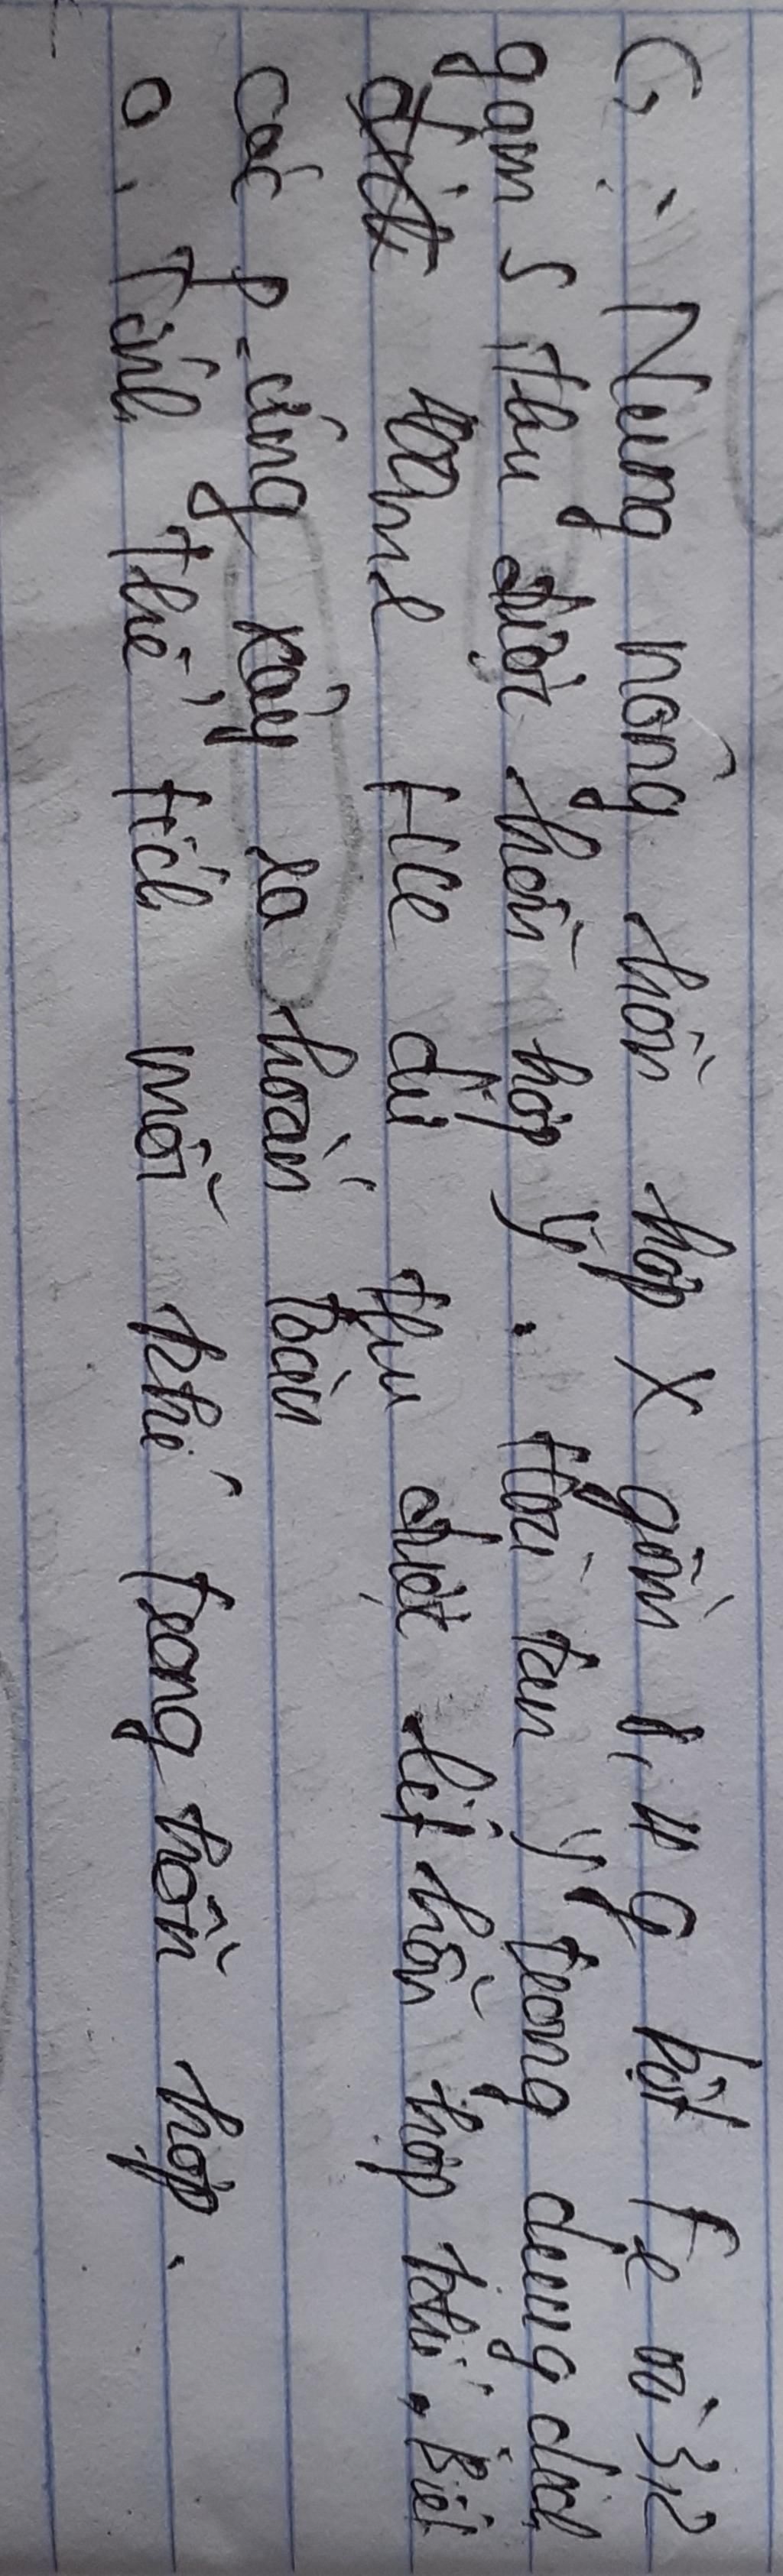 C: Nung nóng hỗn hợp X gồm 8,4 g bột Fe và 3,2
gam S thu được hỗn hợp Y. Hoà tan Y trong dung dịch
400ml HCl dư thu được hết hỗn hợp khí. Biết
các p-ứng xảy ra hoàn toàn
a, Tính thể tích mỗi khí trong hỗn hợp.